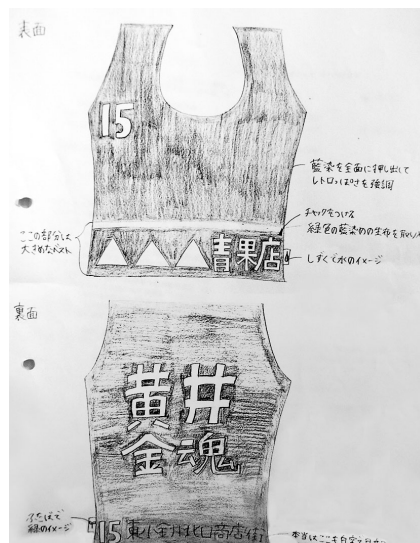 表面
15
藍染を全面に押し出して
レトロっぽさを強調
チャックをつける
緑色の藍染めの生布を取り入
ここの部分は
大きめなポスト
青果店
しずくで水のイメージ
裏面
黄井
金魂
ふたばで
緑のイメージ
15 東小金井北口商店街
本当はここも白字で